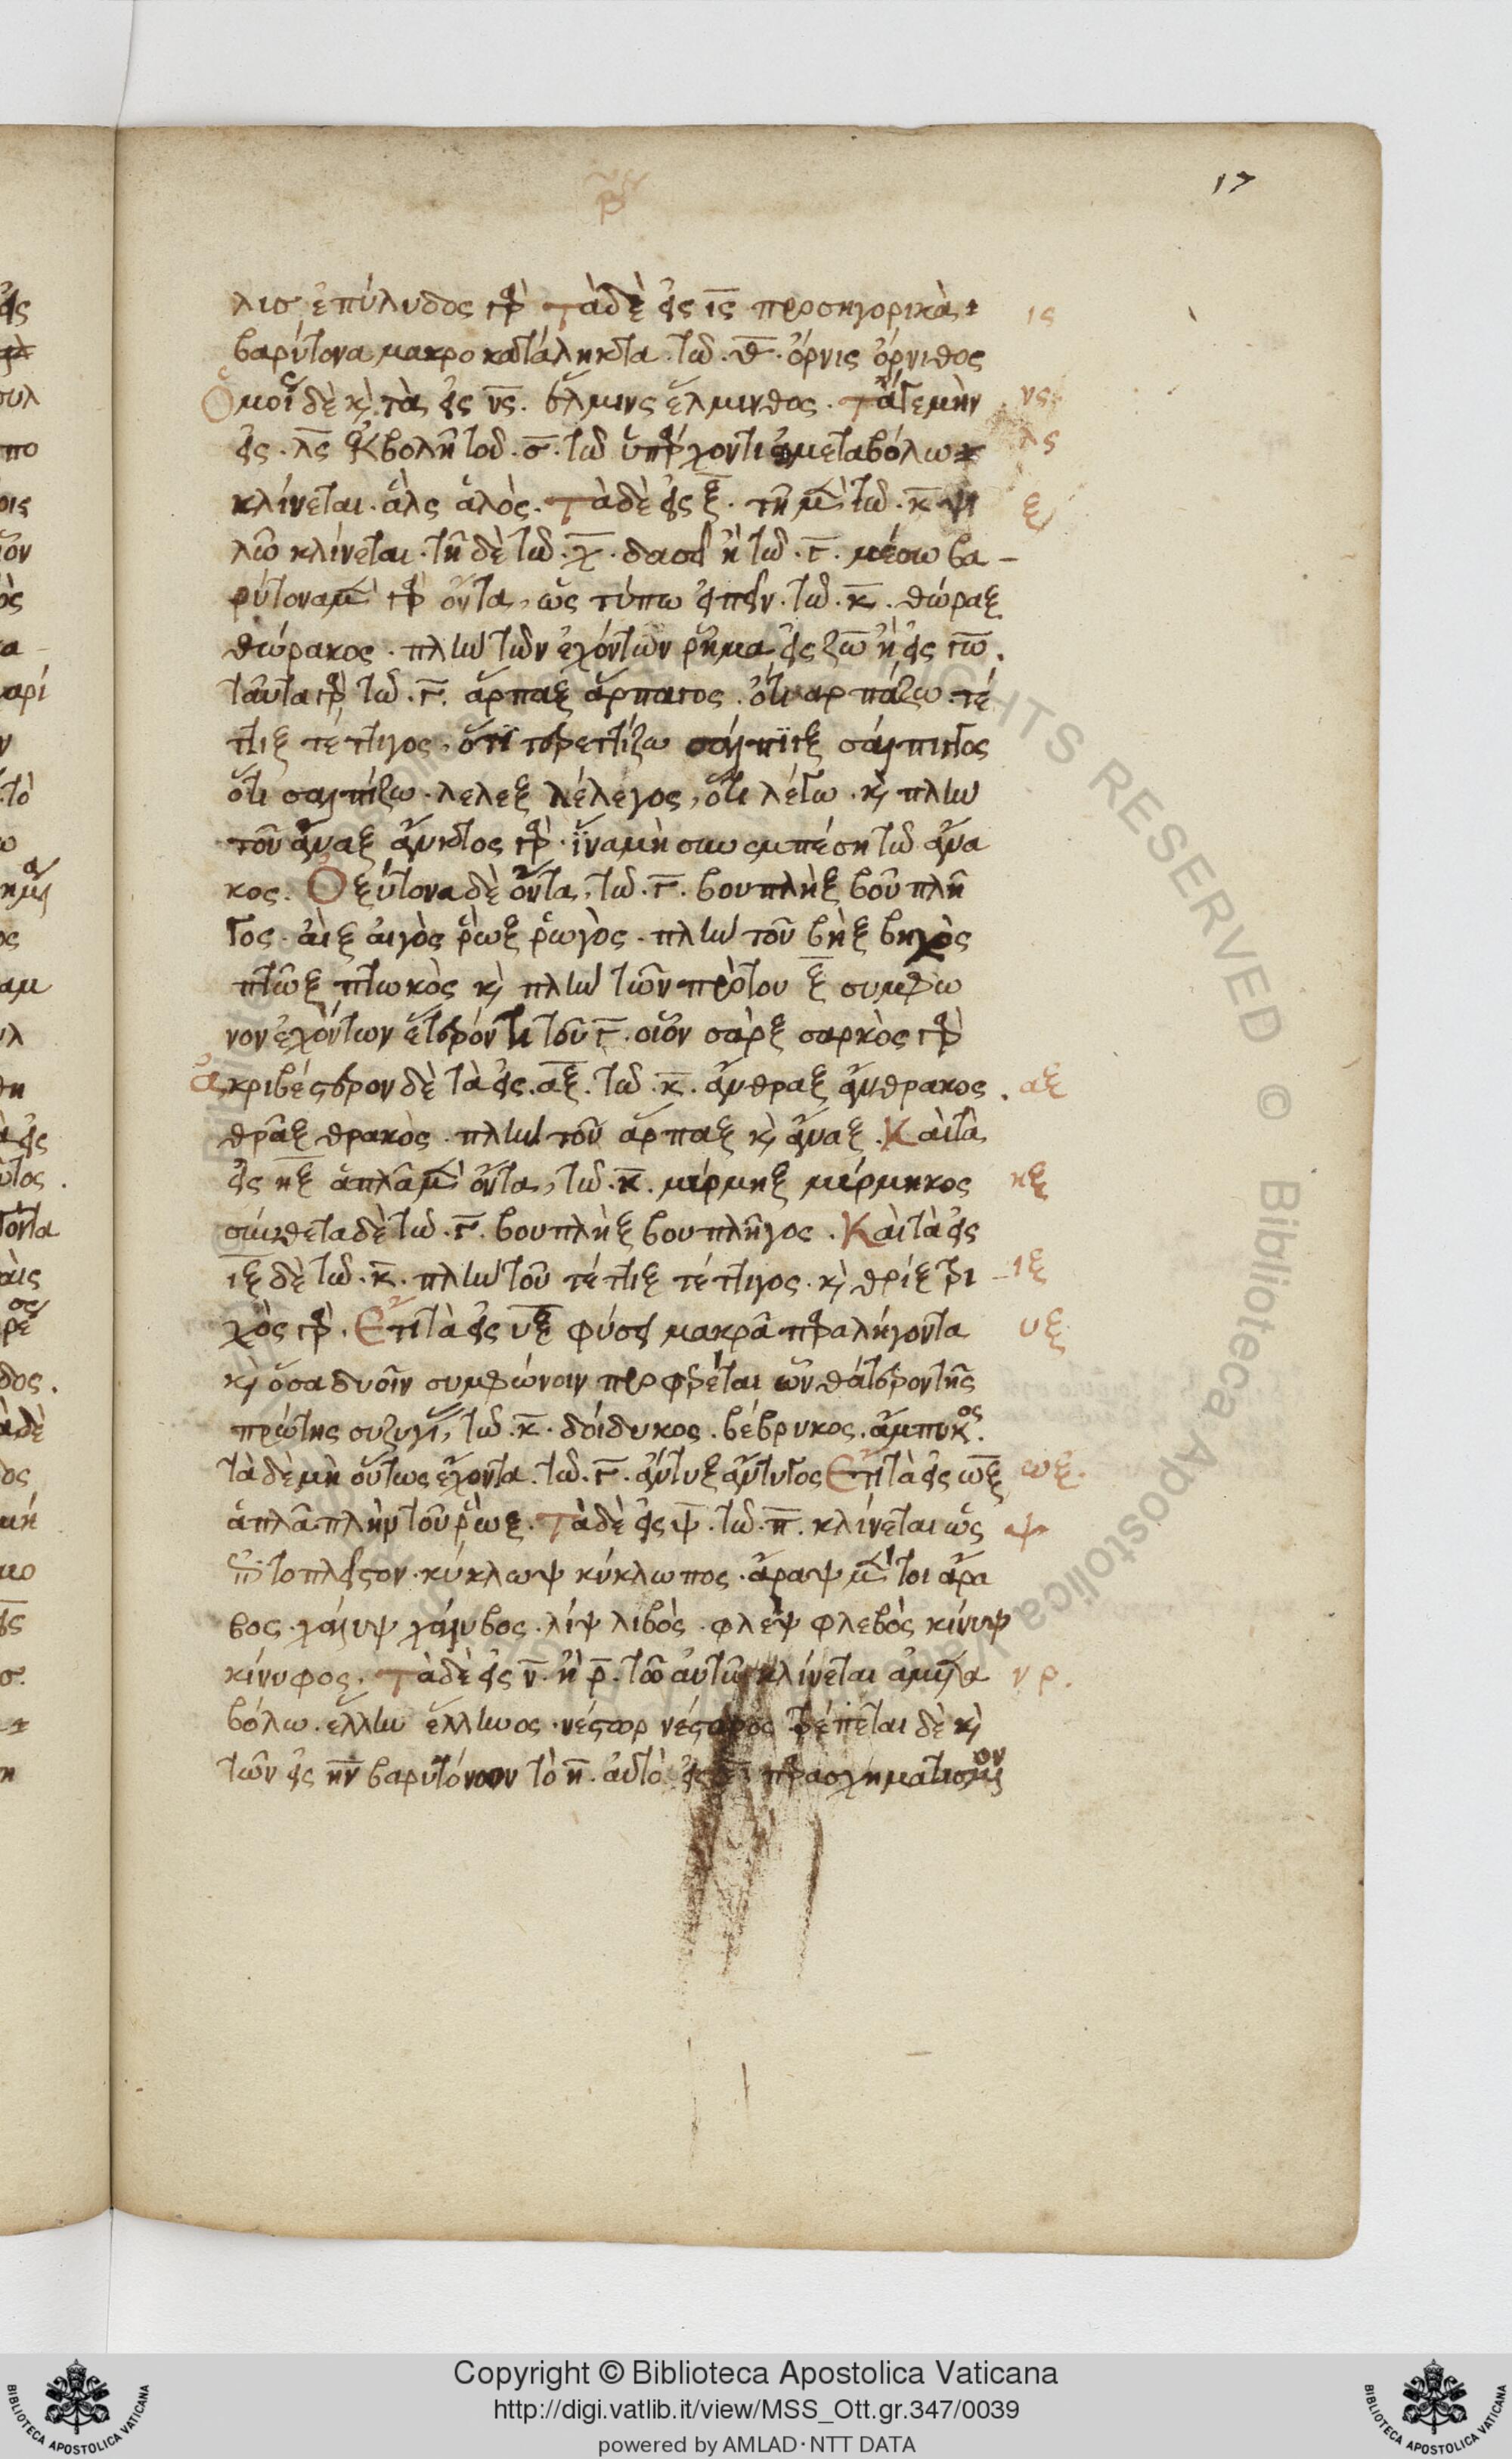 17
β
λις ἐπύλυδος γὰρ Τὰ δὲ εἰς ις προσηγορικὰ
βαρύτονα μακροκατάληκτα. τῶ. θ. ὄρνις ὄρνιθος
Ὅμοι δὲ κὶ τὰ εἰς νς. ἕλμινς ἕλμινθος. Τάγε μὴν
εἰς. λς ἐκβολῆ τοῦ. σ. τῶ ὑπάρχοντι ἀμεταβόλω
κλίνεται. ἅλς ἁλὸς. Τὰ δὲ εἰς ξ. πῆ μὲν τῶ. κ ψι
λῶ κλίνεται. πῆ δὲ τῶ. χ. δασεῖ ἢ τῶ. γ. μέσω βα
ρύτονα μὲν γὰρ ὄντα, ὡς τύπω εἰπεῖν. τῶ. κ. θώραξ
θώρακος. πλὴν τῶν ἐχόντων ῥῆμα εἰς ζω ἢ εἰς γω.
ταῦτα γὰρ τῶ. γ. ἅρπαξ ἅρπαγος. ὅτι αρπάζω. τέ
τιξ τέτιγος, ὅτι τερετίζω σάλπιγξ σάλπιγγος
ὅτι σαλπίζω. λελεξ λέλεγος, ὅτι λέγω. κὶ πλὴν
τοῦ ἄναξ ἄνακτος γὰρ. ἵνα μὴ συνεμπέση τῶ ἄνα
κος. Ὀξύτονα δὲ ὄντα, τῶ. γ. βουπλὴξ βουπλῆ
γος. αἲξ αἰγὸς ῥὼξ ῥωγὸς. πλὴν τοῦ βὴξ βηχὸς
πτῶξ πτωκὸς κὶ πλὴν τῶν πρὸ τοῦ ξ συμφω
νον ἐχόντων ἕτερόν τι τοῦ γ. οἷον σὰρξ σαρκὸς γὰρ
ἀκριβέστερον δὲ τὰ εἰς. αξ. τῶ. κ. ἄνθραξ ἄνθρακος.
θρᾶξ θρακὸς. πλὴν τοῦ ἅρπαξ κὶ ἄναξ. Καὶ τὰ
εἰς ηξ ἁπλᾶ μὲν ὄντα, τῶ. κ. μύρμηξ μύρμηκος
σύνθετα δὲ τῶ. γ. βουπλὴξ βουπλῆγος. Καὶ τὰ εἰς
ιξ δὲ τῶ. κ. πλὴν τοῦ τέτιξ τέτιγος. κὶ θρίξ τρι
χὸς γὰρ. Ἔτι τὰ εἰς υξ φύσει μακρᾶ παραλήγοντα
κὶ ὅσα δυοῖν συμφώνοιν προφέρεται ὧν θάτερον τῆς
πρώτης συζυγί, τῶ. κ. δοίδυκος. βέβρυκος. ἄμπυκος.
τὰ δὲ μὴ οὕτως ἔχοντα. τῶ. γ. ἄντυξ ἄντυγος Ἔτι τὰ εἰς ωξ
ἁπλᾶ πλὴν τοῦ ῥὼξ. Τὰ δὲ εἰς ψ. τῶ. π. κλίνεται ὡς
ἐπὶ τὸ πλεῖστον. κύκλωψ κύκλωπος. ἄραψ μέν τοι ἄρα
βος. χάλυψ χάλυβος. λίψ λιβὸς. φλὲψ φλεβὸς κίνυψ
κίνυφος. Τὰ δὲ εἰς ν. ἢ ρ. τῶ αὐτῶ κλίνεται ἀμετα
βόλω. ἕλλην ἕλληνος. νέστωρ νέστορος τρέπεται δὲ κὶ
τῶν εἰς ην βαρυτόνων τὸ η. αὐτὸ εἰς παρασχηματισμ
ις
νς
λς
ξ
αξ
ηξ
ιξ
υξ
ωξ.
ψ
ν ρ.
Copyright © Biblioteca Apostolica Vaticana
http://digi.vatlib.it/view/MSS_Ott.gr.347/0039
powered by AMLAD · NTT DATA